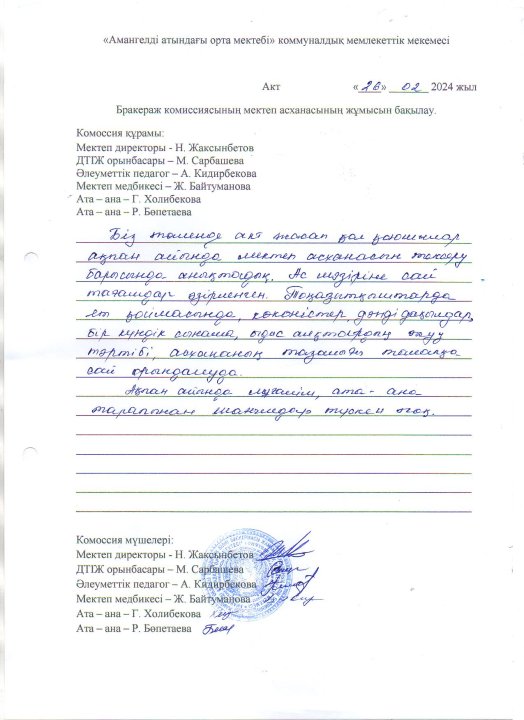 «Амангелді атындағы орта мектебі» коммуналдық мемлекеттік мекемесі
Акт «26» 02 2024 жыл
Бракераж комиссиясының мектеп асханасының жұмысын бақылау.
Комоссия құрамы:
Мектеп директоры - Н. Жаксынбетов
ДТІЖ орынбасары – М. Сарбашева
Әлеуметтік педагог – А. Кидирбекова
Мектеп медбикесі – Ж. Байтуманова
Ата – ана – Г. Холибекова
Ата – ана – Р. Бөпетаева
Біз төменде акт жасап қол қоюшылар
ақпан айында мектеп асханасын тексеру
барысында анықтадық. Ас мәзіріне сай
тағамдар әзірленген. Тоңазытқыштарда
ет қоймасында, көкөністер дәнді дақылдар,
бір күндік сынама, ыдыс аяқтардың жуу
тәртібі, асхананың тазалығы талапқа
сай орындалуда.
Ақпан айында мұғалім, ата - ана
тарапынан шағымдар түскен жоқ.
Комоссия мүшелері:
Мектеп директоры - Н. Жаксынбетов
ДТІЖ орынбасары – М. Сарбашева
Әлеуметтік педагог – А. Кидирбекова
Мектеп медбикесі – Ж. Байтуманова
Ата – ана – Г. Холибекова
Ата – ана – Р. Бөпетаева